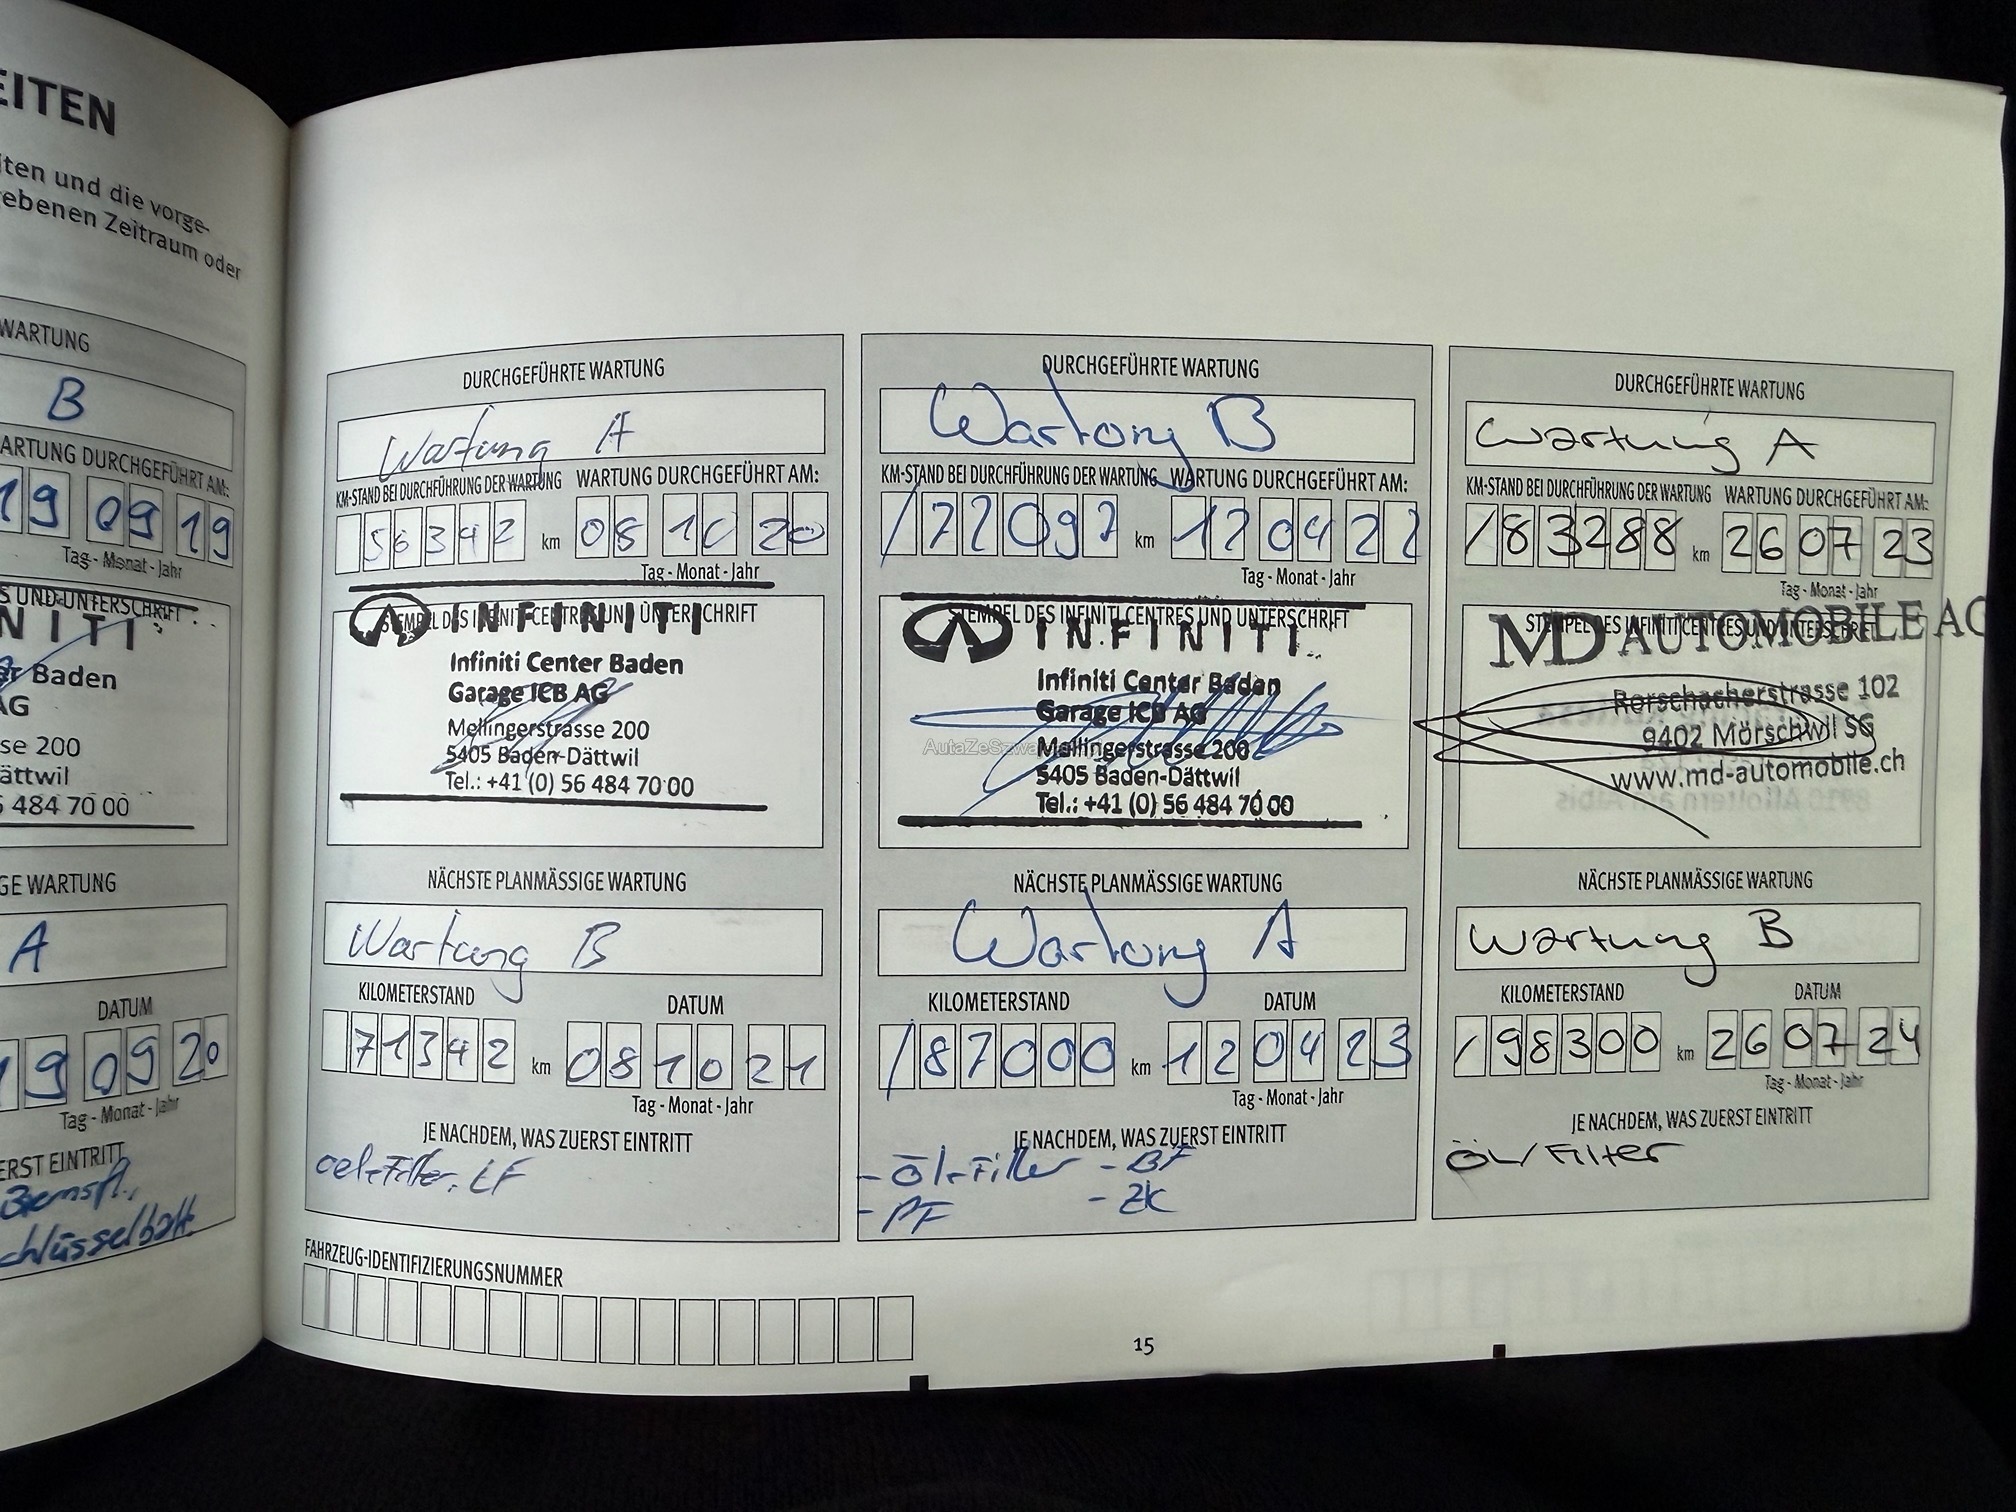 EITEN
ten und die vorge-
ebenen Zeitraum oder
WARTUNG
B
ARTUNG DURCHGEFÜHRT AM:
19 09 19
Tag - Monat - Jahr
S UND UNTERSCHRIFT
NITI
er Baden
AG
se 200
ättwil
6 484 70 00
GE WARTUNG
A
DATUM
19 09 20
Tag - Monat - Jahr
ERST EINTRITT
Bremsfl.,
chlüsselbatt.
DURCHGEFÜHRTE WARTUNG
Wartung A
KM-STAND BEI DURCHFÜHRUNG DER WARTUNG WARTUNG DURCHGEFÜHRT AM:
56342 km 08 10 20
Tag - Monat - Jahr
STEMPEL DES INFINITI CENTRES UND UNTERSCHRIFT
INFINITI
Infiniti Center Baden
Garage ICB AG
Mellingerstrasse 200
5405 Baden-Dättwil
Tel.: +41 (0) 56 484 70 00
NÄCHSTE PLANMÄSSIGE WARTUNG
Wartung B
KILOMETERSTAND DATUM
71342 km 08 10 21
Tag - Monat - Jahr
JE NACHDEM, WAS ZUERST EINTRITT
oel-Filter, LF
DURCHGEFÜHRTE WARTUNG
Wartung B
KM-STAND BEI DURCHFÜHRUNG DER WARTUNG WARTUNG DURCHGEFÜHRT AM:
/72097 km 12 04 22
Tag - Monat - Jahr
STEMPEL DES INFINITI CENTRES UND UNTERSCHRIFT
INFINITI
Infiniti Center Baden
Garage ICB AG
AutaZeSzwa
Mellingerstrasse 200
5405 Baden-Dättwil
Tel.: +41 (0) 56 484 70 00
NÄCHSTE PLANMÄSSIGE WARTUNG
Wartung A
KILOMETERSTAND DATUM
/87000 km 12 04 23
Tag - Monat - Jahr
JE NACHDEM, WAS ZUERST EINTRITT
- Öl-Filter - BF
- PF - ZK
DURCHGEFÜHRTE WARTUNG
Wartung A
KM-STAND BEI DURCHFÜHRUNG DER WARTUNG WARTUNG DURCHGEFÜHRT AM:
/83288 km 26 07 23
Tag - Monat - Jahr
STEMPEL DES INFINITI CENTRES UND UNTERSCHRIFT
MD AUTOMOBILE AG
Rorschacherstrasse 102
9402 Mörschwil SG
www.md-automobile.ch
NÄCHSTE PLANMÄSSIGE WARTUNG
Wartung B
KILOMETERSTAND DATUM
/98300 km 26 07 24
Tag - Monat - Jahr
JE NACHDEM, WAS ZUERST EINTRITT
Öl/Filter
FAHRZEUG-IDENTIFIZIERUNGSNUMMER
15